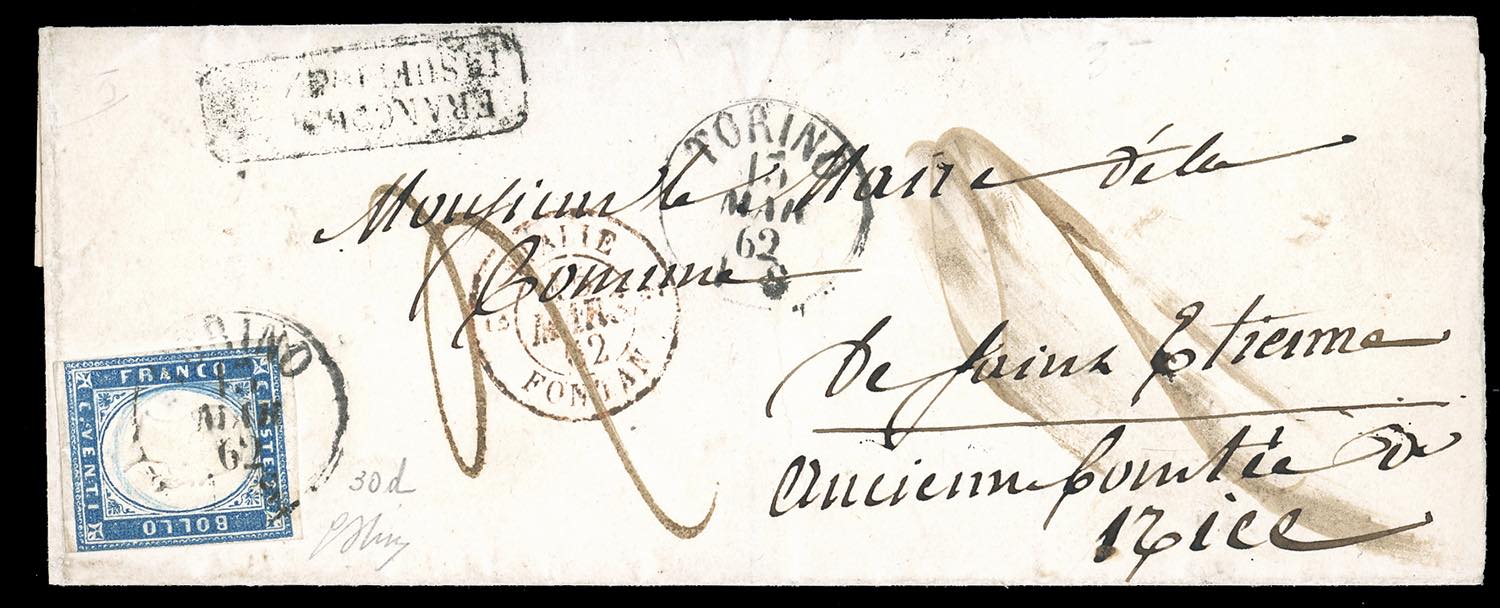 FRANCOBO
INSUFFIC
TORINO
15
MAR
62
8
Monsieur le Maire de la
Commune
ITALIE
MARS
62
FONTAN
de Saint Etienne
Ancienne Comtée de
Nice
TORINO
MAR
62
FRANCO
C. VENTI
BOLLO
30d